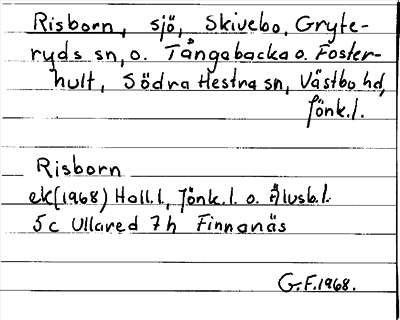 Risborn, sjö, Skivebo, Gryte-
ryds sn, o. Tångabacka o. Foster-
hult, Södra Hestra sn, Västbo hd,
Jönk.l.
Risborn
ek(1968) Hall.l., Jönk.l. o. Älvsb.l.
5c Ullared 7h Finnanäs
G.F.1968.